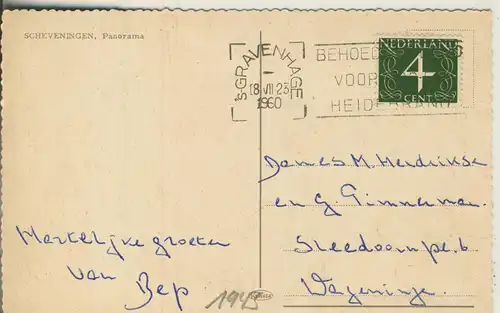 SCHEVENINGEN, Panorama
's-GRAVENHAGE
18 VII 23
1960
BEHOED
VOOR
HEIDEBRAND
NEDERLAND
4
CENT
Dames M. Hendrikse
en G. Timmerman
Wageningen
Hartelijke groeten
van Bep
1945